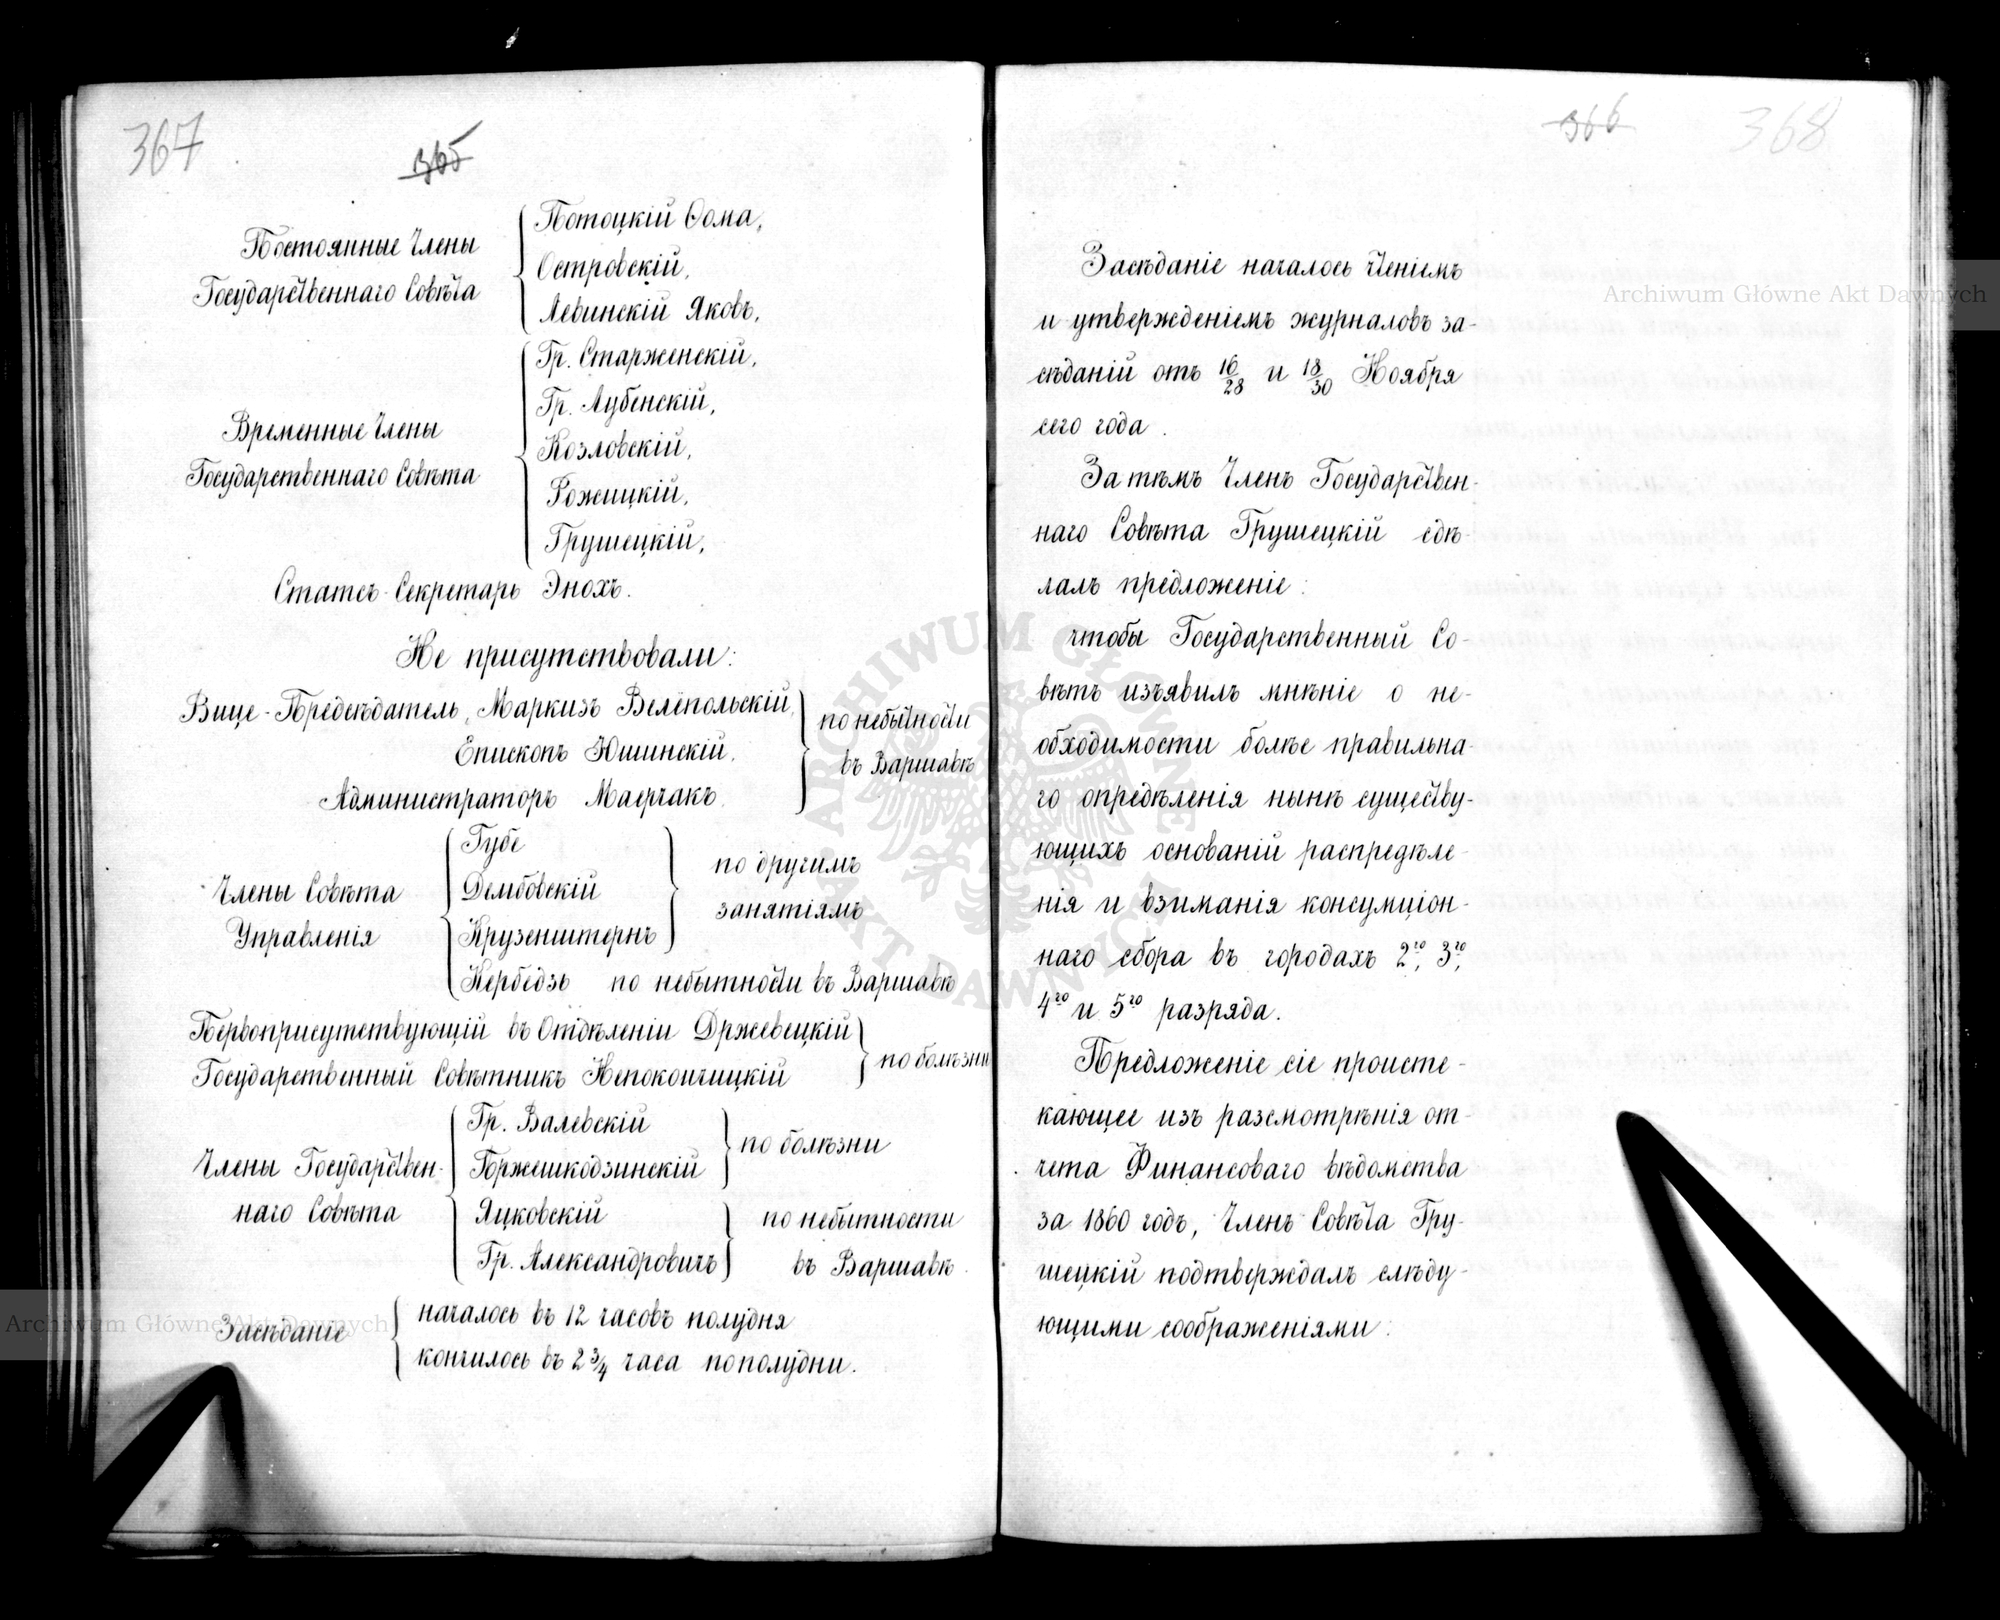 367
365
Постоянные Члены
Государственнаго Совѣта
Потоцкій Ѳома,
Островскій,
Левинскій Яковъ,
Временные Члены
Государственнаго Совѣта
Гр. Старженскій,
Гр. Лубенскій,
Козловскій,
Рожицкій,
Грушецкій,
Статсъ-Секретарь Энохъ.
Не присутствовали:
Вице-Предсѣдатель, Маркизъ Велепольскій,
Епископъ Юшинскій,
Администраторъ Маерчакъ
по небытности
въ Варшавѣ
Члены Совѣта
Управленія
Губе
Дембовскій
Крузенштернъ
по другимъ
занятіямъ
Кербедзь по небытности въ Варшавѣ
Первоприсутствующій въ Отдѣленіи Држевецкій
Государственный Совѣтникъ Непокойчицкій
по болѣзни
Члены Государствен-
наго Совѣта
Гр. Валевскій
Горжешкодзинскій
по болѣзни
Яцковскій
Гр. Александровичъ
по небытности
въ Варшавѣ.
Засѣданіе
началось въ 12 часовъ полудня
кончилось въ 2 3/4 часа пополудни.
366
368
Засѣданіе началось чтеніемъ
и утвержденіемъ журналовъ за-
сѣданій отъ 16/28 и 18/30 Ноября
сего года.
За тѣмъ Членъ Государствен-
наго Совѣта Грушецкій сдѣ-
лалъ предложеніе:
чтобы Государственный Со-
вѣтъ изъявилъ мнѣніе о не-
обходимости болѣе правильна-
го опредѣленія нынѣ существу-
ющихъ основаній распредѣле-
нія и взиманія консумціон-
наго сбора въ городахъ 2го, 3го,
4го и 5го разряда.
Предложеніе сіе происте-
кающее изъ разсмотрѣнія от-
чета Финансоваго вѣдомства
за 1860 годъ, Членъ Совѣта Гру-
шецкій подтверждалъ слѣду-
ющими соображеніями:
Archiwum Główne Akt Dawnych
Archiwum Główne Akt Dawnych
ARCHIWUM GŁÓWNE
AKT DAWNYCH